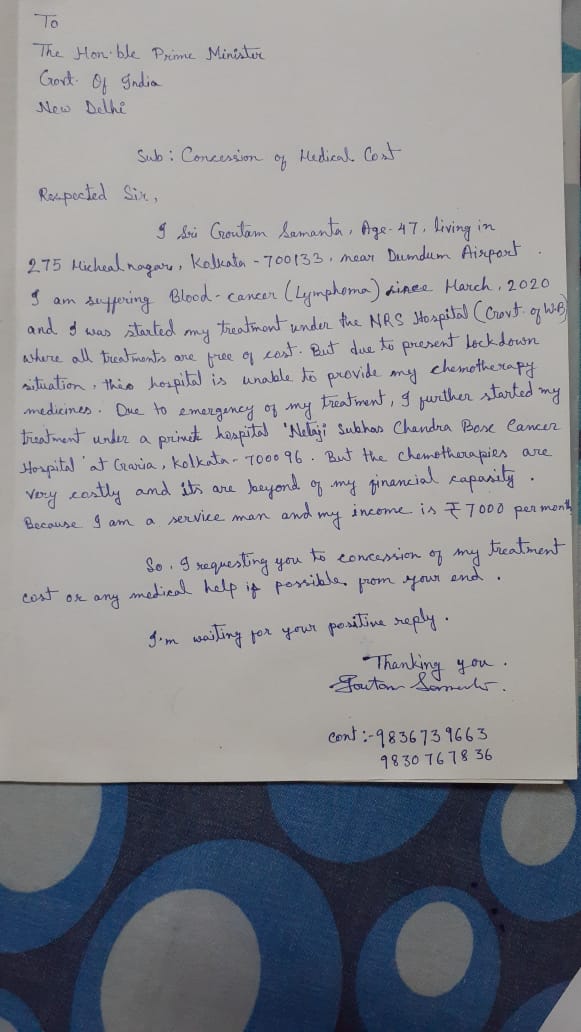 To
The Hon'ble Prime Minister
Govt. Of India
New Delhi
Sub : Concession of Medical Cost
Respected Sir,
I Sri Goutam Samanta, Age-47, living in
275 Micheal nagar, Kolkata - 700133, near Dumdum Airport.
I am suffering Blood-cancer (Lymphoma) since March, 2020
and I was started my treatment under the NRS Hospital (Govt. of W.B)
where all treatments are free of cost. But due to present lockdown
situation, this hospital is unable to provide my chemotherapy
medicines. Due to emergency of my treatment, I further started my
treatment under a hospital 'Netaji Subhas Chandra Bose Cancer
Hospital' at Garia, Kolkata - 700096. But the chemotherapies are
very costly and its are beyond of my financial capasity.
Because I am a service man and my income is ₹7000 per month
So, I requesting you to concession of my treatment
cost or any medical help if possible from your end.
I'm waiting for your positive reply.
Thanking you.
Goutam Samanta.
cont :- 9836739663
9830767836